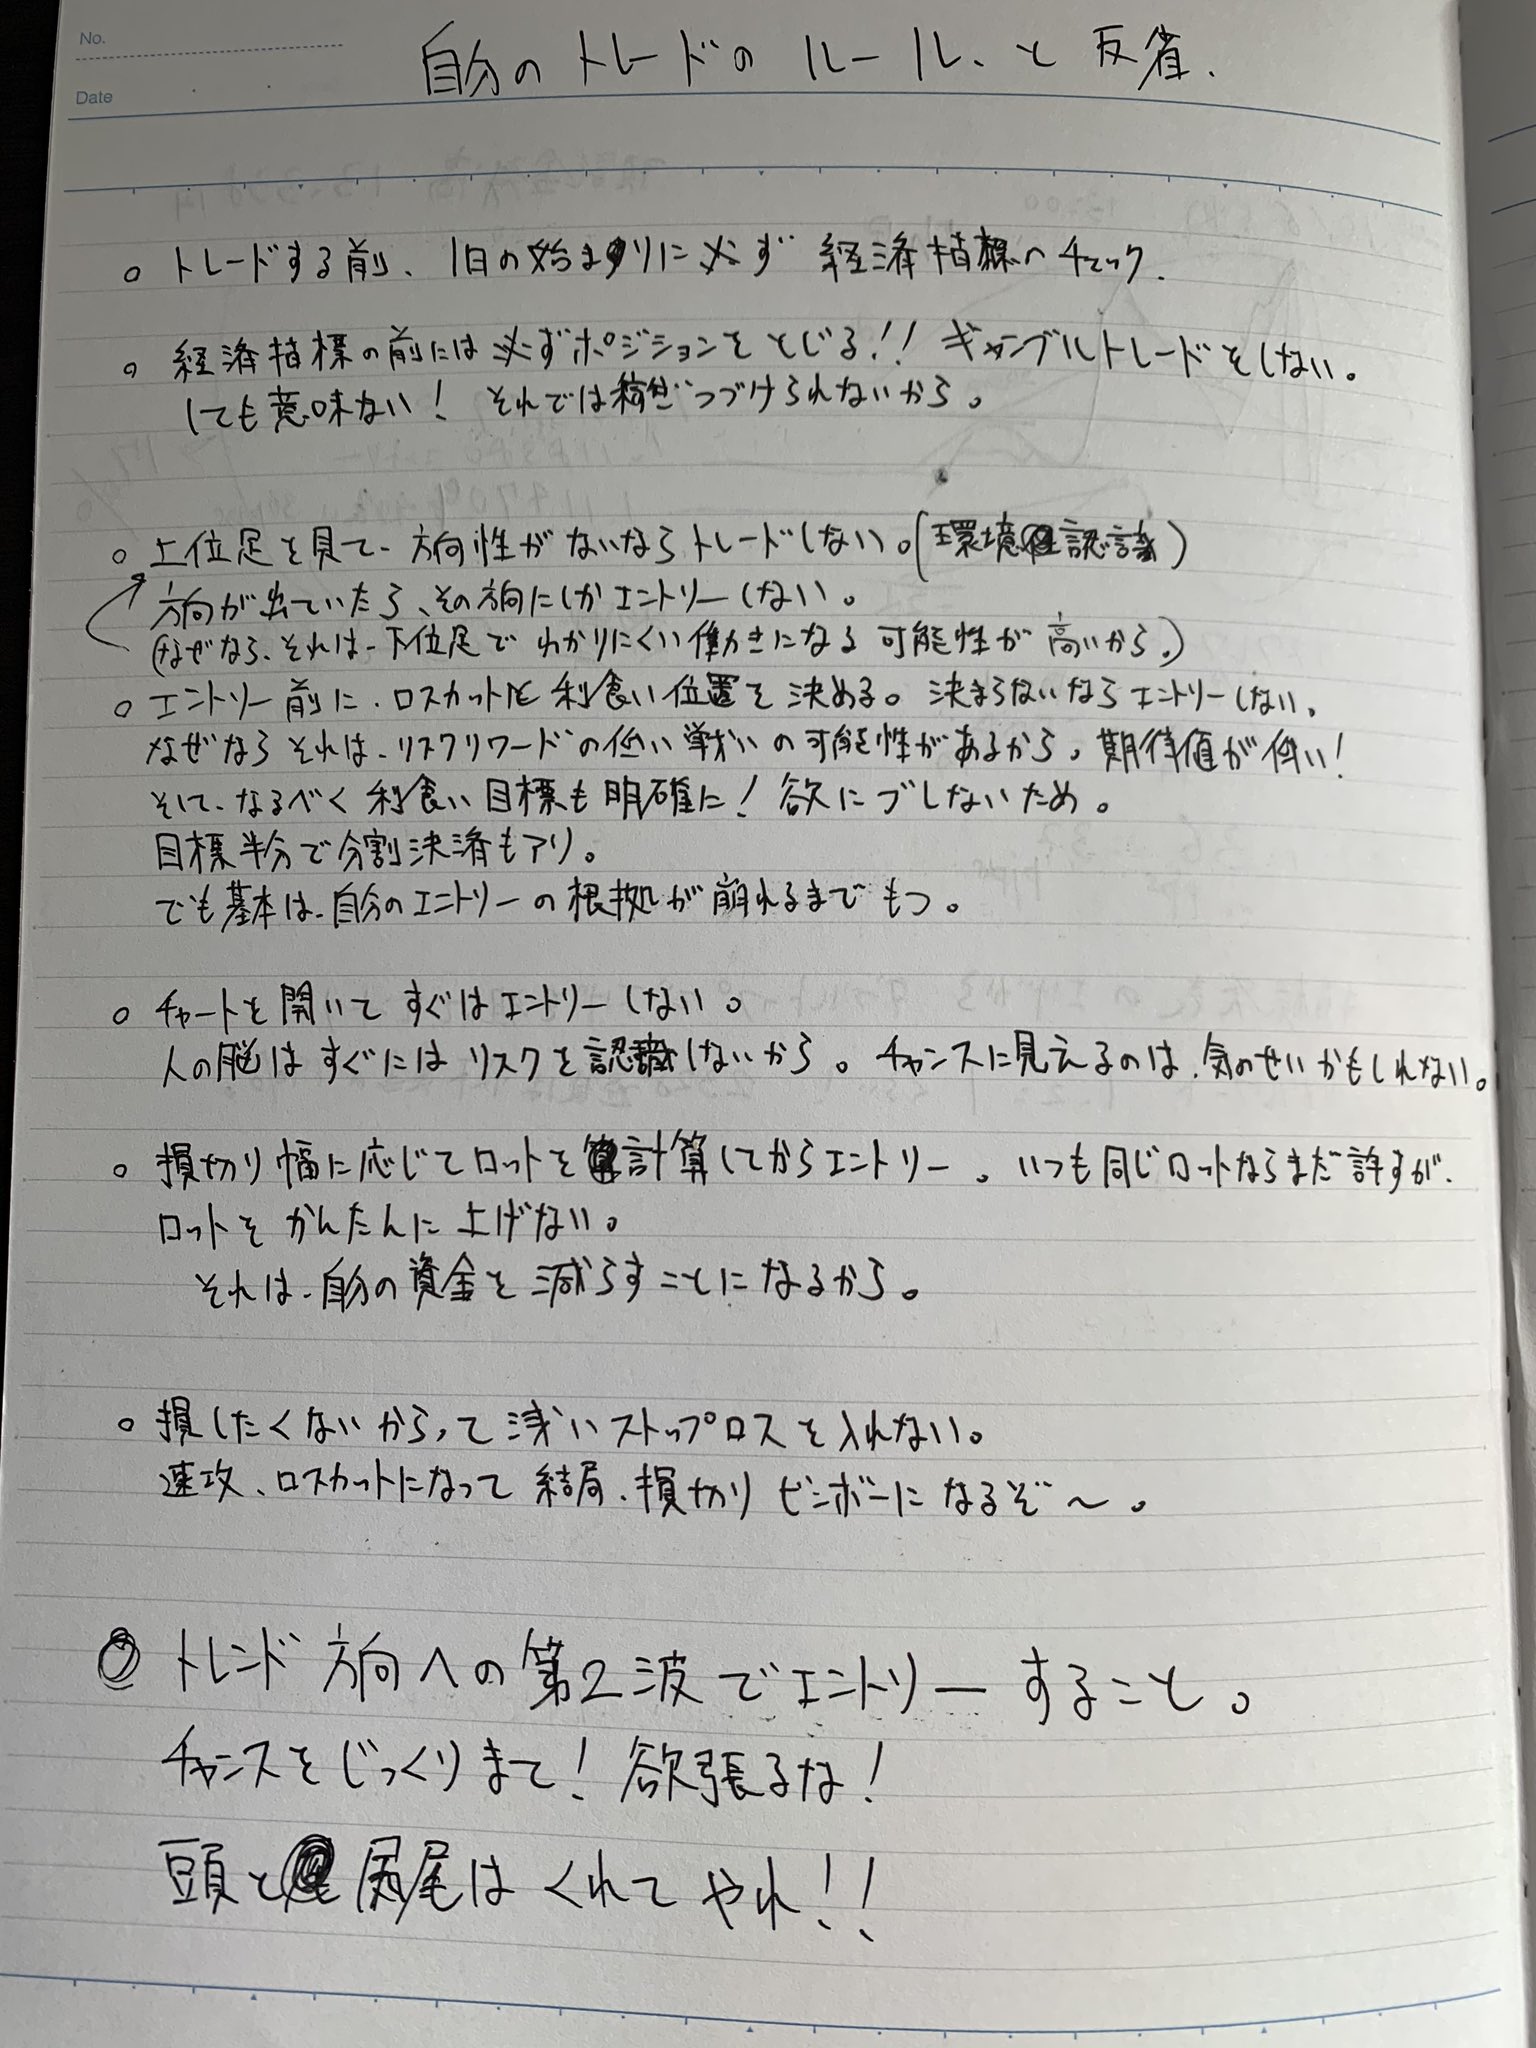 No.
自分のトレードのルール、と反省.
Date
○ トレードする前、1日の始まりに必ず 経済指標へチェック.
○ 経済指標の前には必ずポジションをとじる!! ギャンブルトレードをしない。
しても意味ない! それでは稼ぎつづけられないから。
○ 上位足を見て、方向性がないならトレードしない。(環境認識)
方向が出ていたら、その方向にしかエントリーしない。
(なぜなら、それは、下位足でわかりにくい働きになる可能性が高いから。)
○ エントリー前に、ロスカットと利食い位置を決める。決まらないならエントリーしない。
なぜなら それは、リスクリワードの低い戦いの可能性があるから。期待値が低い!
そして、なるべく利食い目標も明確に! 欲にブレないため。
目標半分で分割決済もアリ。
でも基本は、自分のエントリーの根拠が崩れるまでもつ。
○ チャートを開いて すぐはエントリーしない。
人の脳はすぐにはリスクを認識しないから。チャンスに見えるのは、気のせいかもしれない。
○ 損切り幅に応じてロットを計算してからエントリー。いつも同じロットならまだ許すが、
ロットをかんたんに上げない。
それは、自分の資金を減らすことになるから。
○ 損したくないからって浅いストップロスを入れない。
速攻、ロスカットになって結局、損切りビンボーになるぞ〜。
◎ トレンド方向への第2波でエントリーすること。
チャンスをじっくりまて! 欲張るな!
頭と尻尾はくれてやれ!!